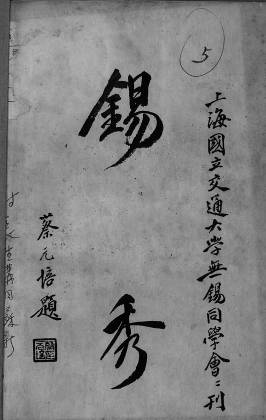 5
上海國立交通大學無錫同學會〻刊
錫秀
蔡元培題